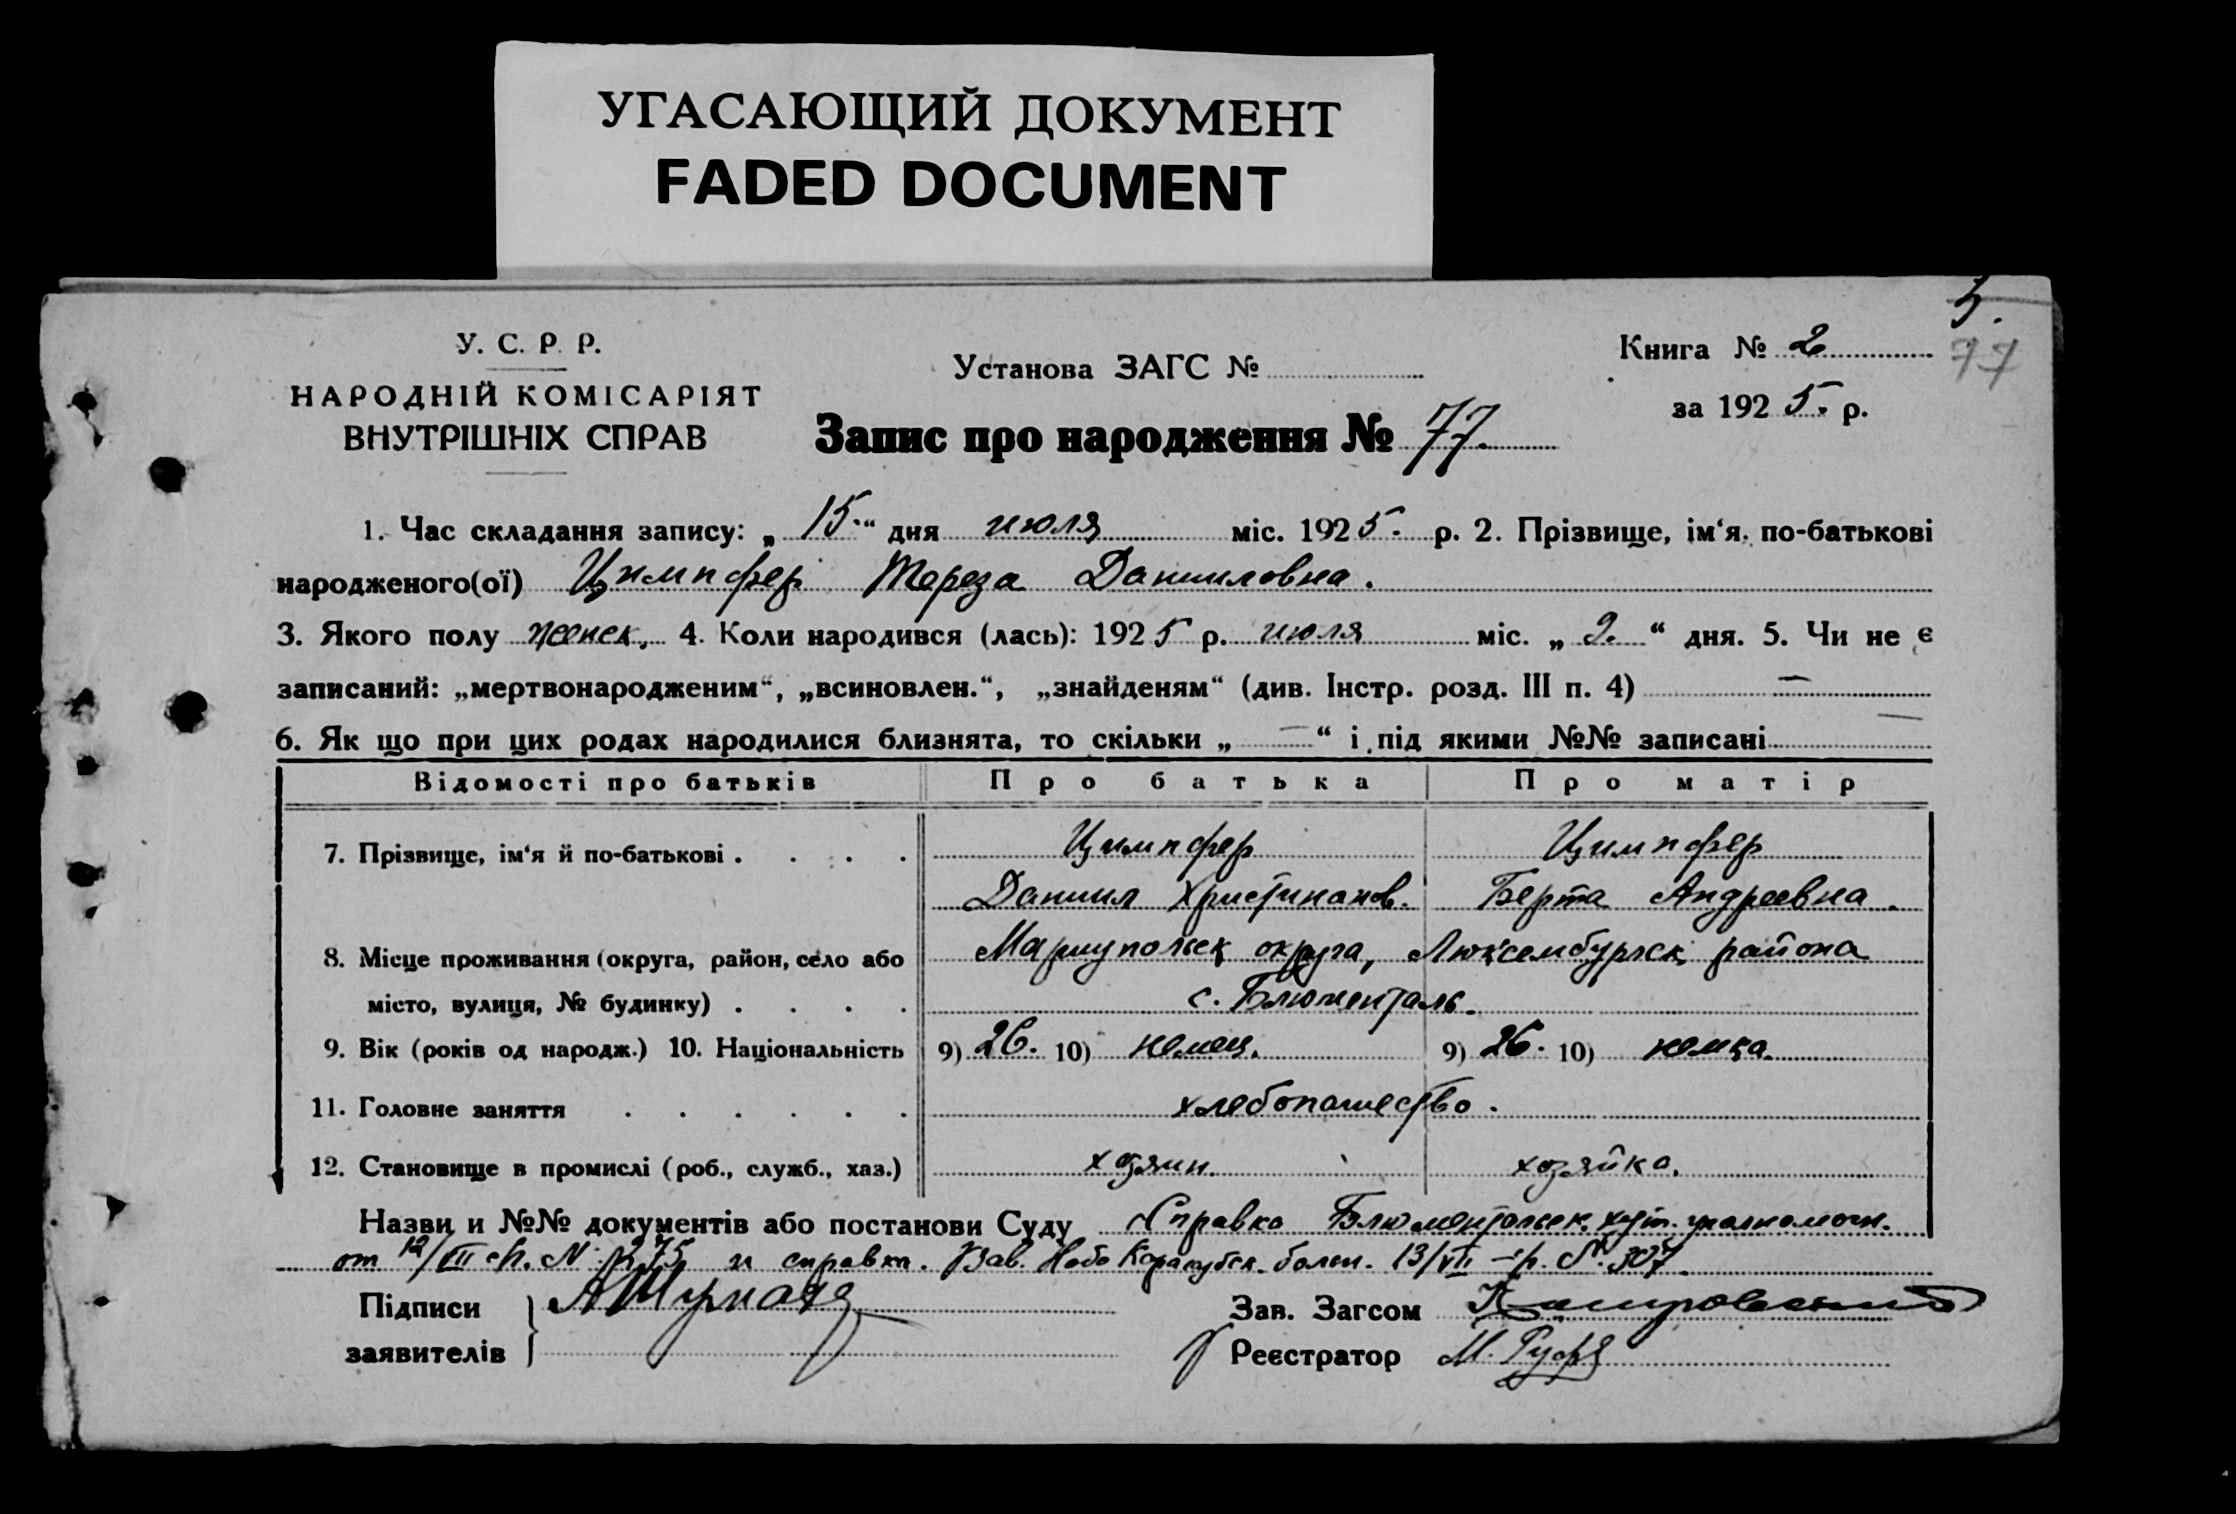 УГАСАЮЩИЙ ДОКУМЕНТ
FADED DOCUMENT
5.
77
У. С. Р. Р.
НАРОДНІЙ КОМІСАРІЯТ
ВНУТРІШНІХ СПРАВ
Установа ЗАГС №
Книга № 2
за 192 5. р.
Запис про народження № 77.
1. Час складання запису: „ 15. “ дня июля міс. 192 5. р. 2. Прізвище, ім‘я, по-батькові
народженого(ої) Цимпфер Тереза Данииловна.
3. Якого полу женск. 4. Коли народився (лась): 192 5 р. июля міс. „ 2. “ дня. 5. Чи не є
записаний: „мертвонародженим“, „всиновлен.“, „знайденям“ (див. Інстр. розд. III п. 4) —
6. Як що при цих родах народилися близнята, то скільки „ — “ і під якими №№ записані —
Відомості про батьків Про батька Про матір
7. Прізвище, ім‘я й по-батькові . . . . Цимпфер Цимпфер
Даниил Христианов. Берта Андреевна.
8. Місце проживання (округа, район, село або Мариупольск округа, Люксембургск района
місто, вулиця, № будинку) . . . . с. Блюменталь.
9. Вік (років од народж.) 10. Національність 9) 26. 10) немец. 9) 26. 10) немка.
11. Головне заняття . . . . . . хлебопашество.
12. Становище в промислі (роб., служб., хаз.) хозяин. хозяйка.
Назви и №№ документів або постанови Суду Справка Блюментальск. хут. уполномоч.
от 12/VII с/г. N: 275 и справка. Зав. Ново Каракубск. больн. 13/VII с/г. №. 307.
Підписи
заявителів
Зав. Загсом
Реєстратор М.